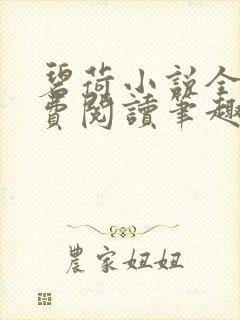 碧荷小說全
費閱讀筆趣
農家妞妞